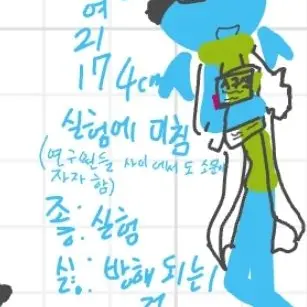 여
21
174cm
실험에 미침
(연구원들 사이에서도 소문에
자자함)
좋: 실험
싫: 방해되는
것